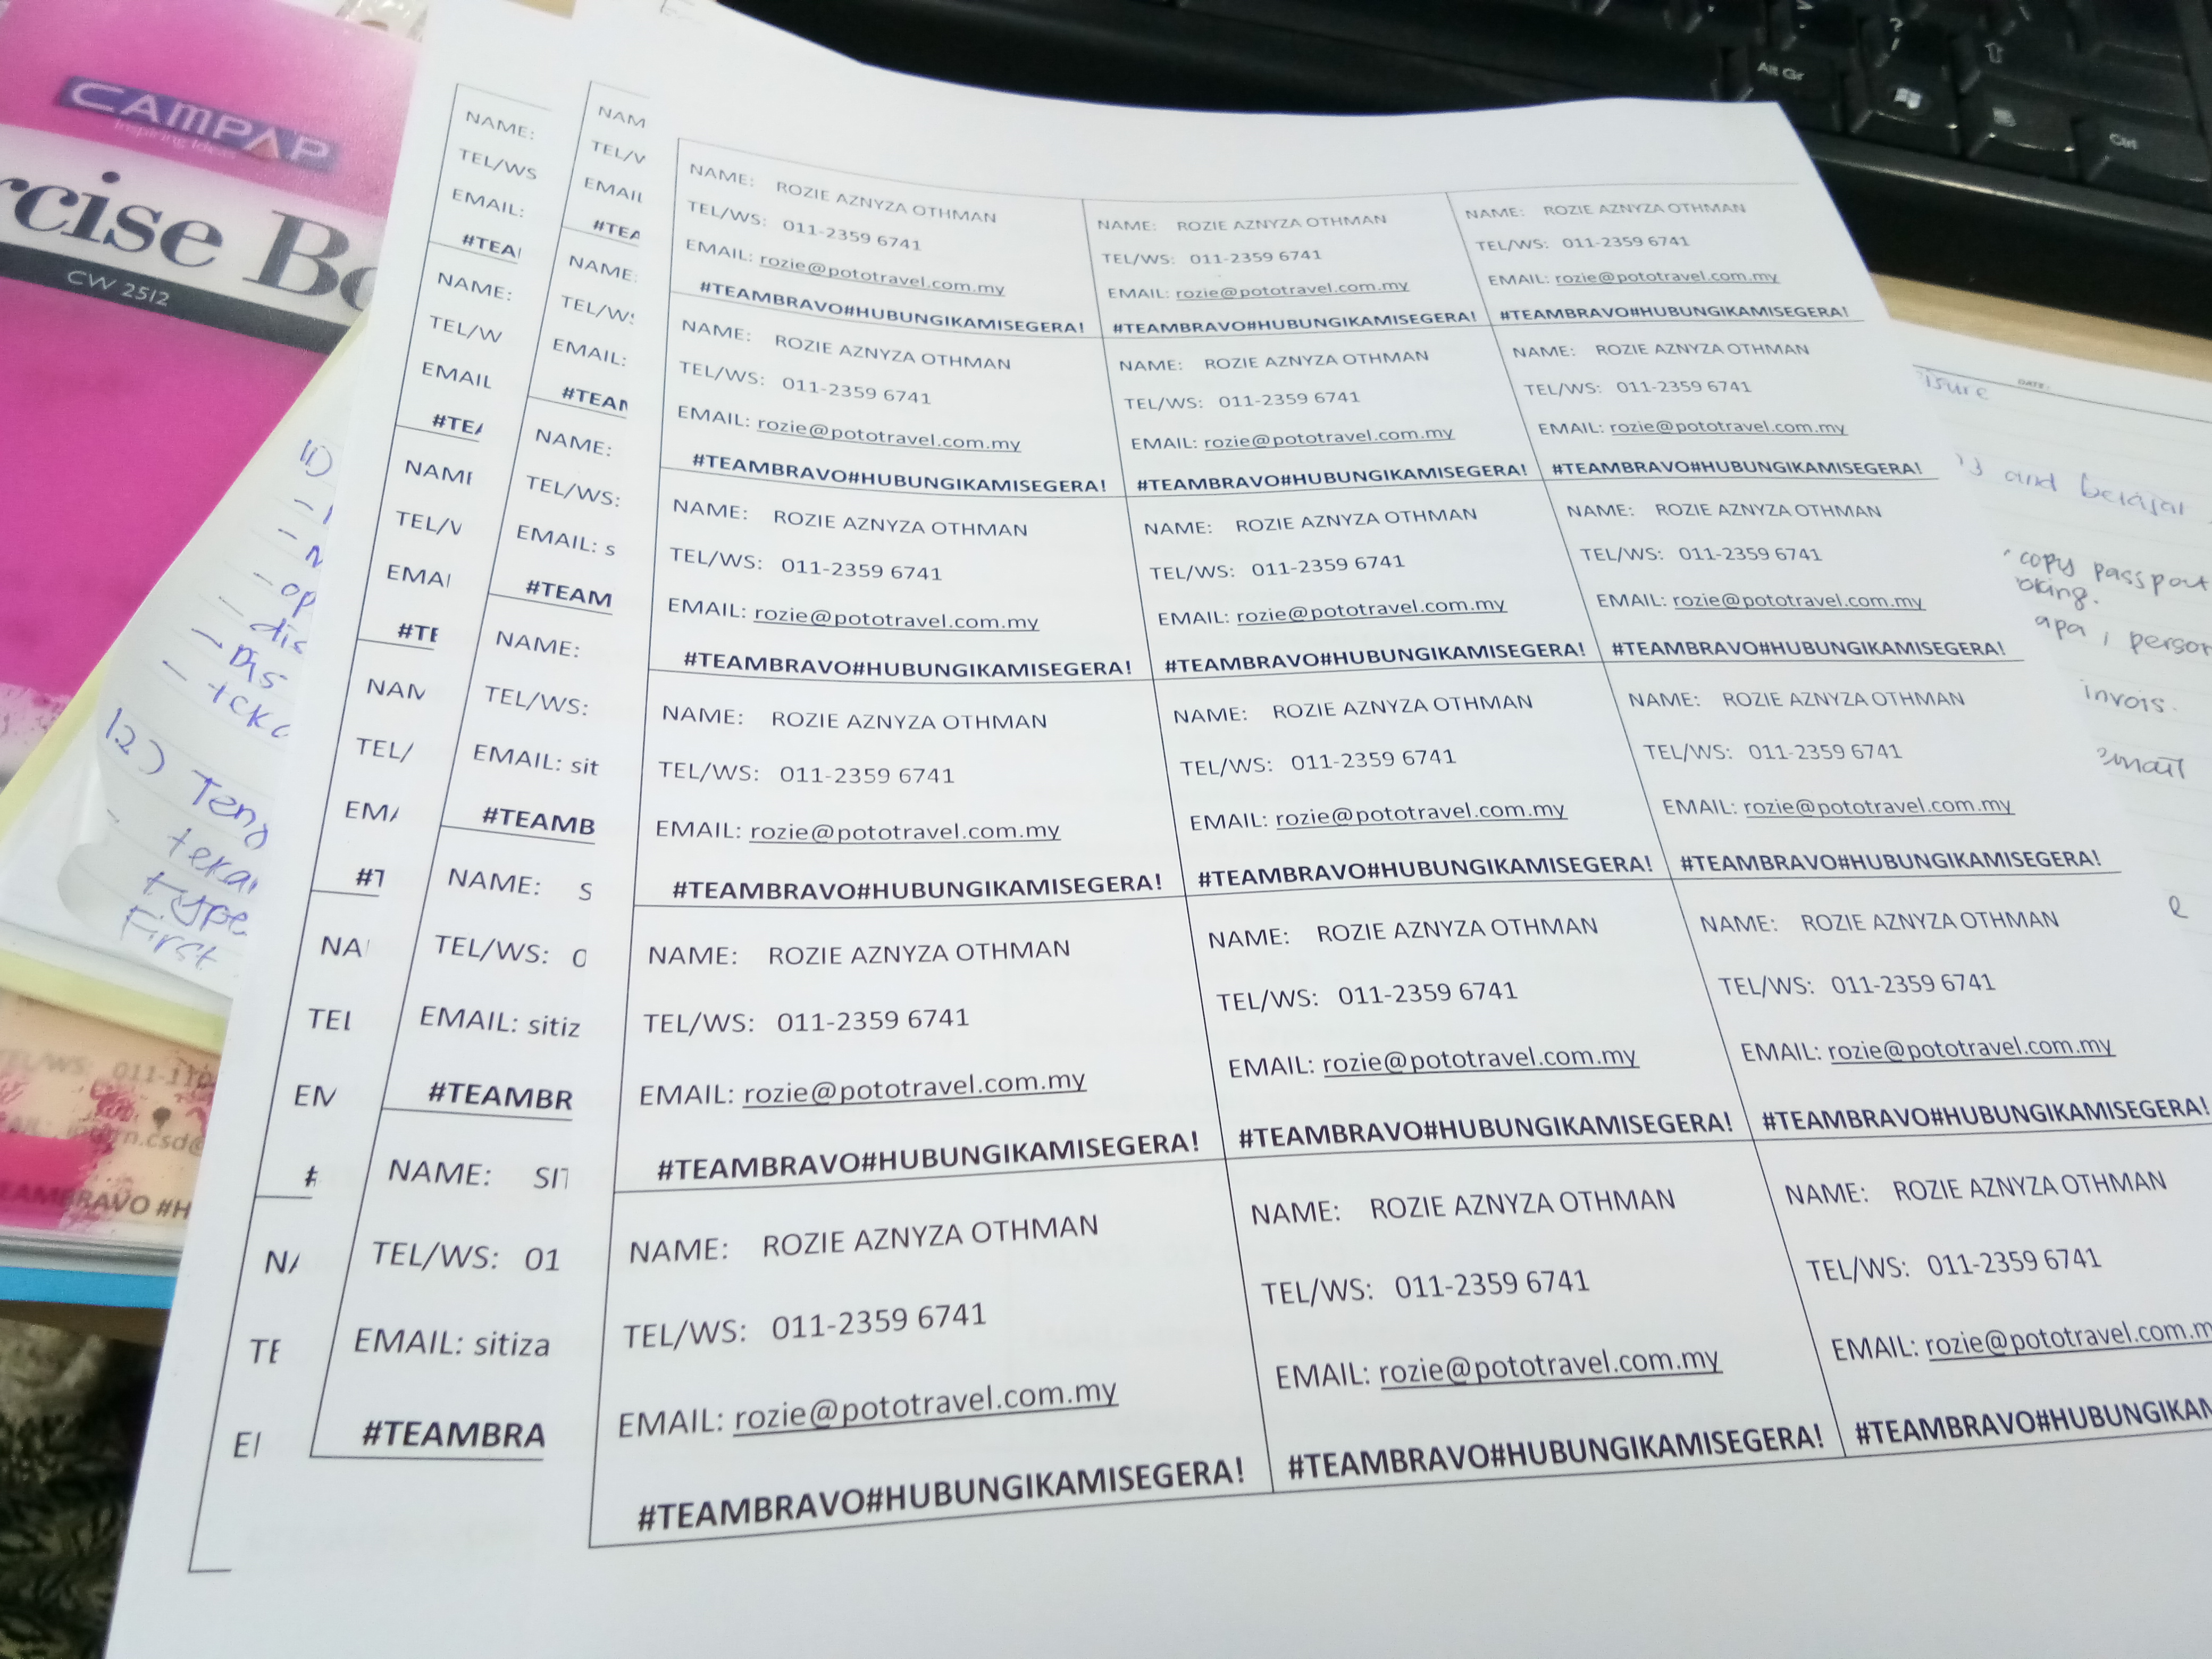 CAMPAP
Inspiring Ideas
rcise Bo
CW 2512
11)
op
dis
12) Teng
tekai
type
First
TEL/WS: 011-110
intern.csd@
TEAMBRAVO #H
NAME:
TEL/WS
EMAIL:
#TEAI
NAME:
TEL/W
EMAIL
#TEA
NAME
TEL/V
EMAI
#TE
NAM
TEL/
EMA
#T
NA
TEL
EM
#
NA
TE
EI
NAM
TEL/V
EMAIL
#TEA
NAME:
TEL/WS
EMAIL:
#TEAM
NAME:
TEL/WS:
EMAIL: s
#TEAM
NAME:
TEL/WS:
EMAIL: sit
#TEAMB
NAME: S
TEL/WS: 0
EMAIL: sitiz
#TEAMBR
NAME: SIT
TEL/WS: 01
EMAIL: sitiza
#TEAMBRA
NAME: ROZIE AZNYZA OTHMAN
TEL/WS: 011-2359 6741
EMAIL: rozie@pototravel.com.my
#TEAMBRAVO#HUBUNGIKAMISEGERA!
NAME: ROZIE AZNYZA OTHMAN
TEL/WS: 011-2359 6741
EMAIL: rozie@pototravel.com.my
#TEAMBRAVO#HUBUNGIKAMISEGERA!
NAME: ROZIE AZNYZA OTHMAN
TEL/WS: 011-2359 6741
EMAIL: rozie@pototravel.com.my
#TEAMBRAVO#HUBUNGIKAMISEGERA!
NAME: ROZIE AZNYZA OTHMAN
TEL/WS: 011-2359 6741
EMAIL: rozie@pototravel.com.my
#TEAMBRAVO#HUBUNGIKAMISEGERA!
NAME: ROZIE AZNYZA OTHMAN
TEL/WS: 011-2359 6741
EMAIL: rozie@pototravel.com.my
#TEAMBRAVO#HUBUNGIKAMISEGERA!
NAME: ROZIE AZNYZA OTHMAN
TEL/WS: 011-2359 6741
EMAIL: rozie@pototravel.com.my
#TEAMBRAVO#HUBUNGIKAMISEGERA!
NAME: ROZIE AZNYZA OTHMAN
TEL/WS: 011-2359 6741
EMAIL: rozie@pototravel.com.my
#TEAMBRAVO#HUBUNGIKAMISEGERA!
NAME: ROZIE AZNYZA OTHMAN
TEL/WS: 011-2359 6741
EMAIL: rozie@pototravel.com.my
#TEAMBRAVO#HUBUNGIKAMISEGERA!
NAME: ROZIE AZNYZA OTHMAN
TEL/WS: 011-2359 6741
EMAIL: rozie@pototravel.com.my
#TEAMBRAVO#HUBUNGIKAMISEGERA!
NAME: ROZIE AZNYZA OTHMAN
TEL/WS: 011-2359 6741
EMAIL: rozie@pototravel.com.my
#TEAMBRAVO#HUBUNGIKAMISEGERA!
NAME: ROZIE AZNYZA OTHMAN
TEL/WS: 011-2359 6741
EMAIL: rozie@pototravel.com.my
#TEAMBRAVO#HUBUNGIKAMISEGERA!
NAME: ROZIE AZNYZA OTHMAN
TEL/WS: 011-2359 6741
EMAIL: rozie@pototravel.com.my
#TEAMBRAVO#HUBUNGIKAMISEGERA!
NAME: ROZIE AZNYZA OTHMAN
TEL/WS: 011-2359 6741
EMAIL: rozie@pototravel.com.my
#TEAMBRAVO#HUBUNGIKAMISEGERA!
NAME: ROZIE AZNYZA OTHMAN
TEL/WS: 011-2359 6741
EMAIL: rozie@pototravel.com.my
#TEAMBRAVO#HUBUNGIKAMISEGERA!
NAME: ROZIE AZNYZA OTHMAN
TEL/WS: 011-2359 6741
EMAIL: rozie@pototravel.com.my
#TEAMBRAVO#HUBUNGIKAMISEGERA!
NAME: ROZIE AZNYZA OTHMAN
TEL/WS: 011-2359 6741
EMAIL: rozie@pototravel.com.my
#TEAMBRAVO#HUBUNGIKAMISEGERA!
NAME: ROZIE AZNYZA OTHMAN
TEL/WS: 011-2359 6741
EMAIL: rozie@pototravel.com.my
#TEAMBRAVO#HUBUNGIKAMISEGERA!
NAME: ROZIE AZNYZA OTHMAN
TEL/WS: 011-2359 6741
EMAIL: rozie@pototravel.com.m
#TEAMBRAVO#HUBUNGIKAM
Alt Gr
?
/
Ctrl
DATE:
isure
and belajar
copy passport
oking.
apa, person
invois.
email